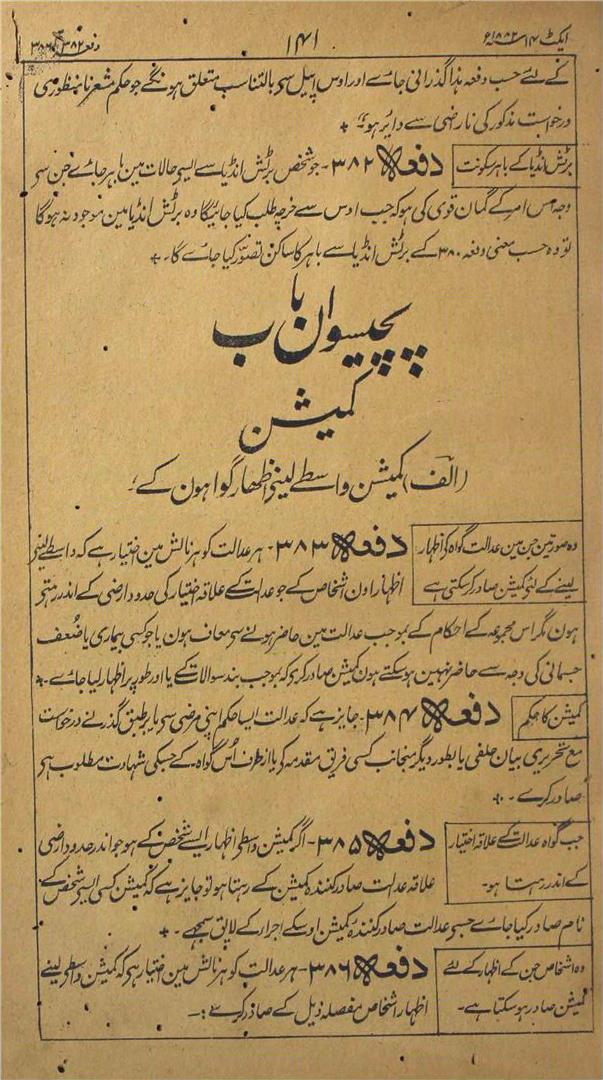 ایکٹ ۱۴ سنہ ۱۸۸۲ء
۱۴۱
دفعہ ۳۸۲-۳۸۶
کے لئے حسب دفعہ ہذا گذرانی جاے اور اوس اپیل سی بالتناسب متعلق ہونگے جو حکم مشعر نامنظوری
درخواست مذکور کی ناراضی سے دایر ہو
برٹش انڈیا کے باہر سکونت
دفعہ ۳۸۲- جو شخص برٹش انڈیا سے ایسی حالات مین باہر جاے جن سی
وجہ اس امر کے گمان قوی کی ہو کہ جب اوس سے خرچہ طلب کیا جائیگا وہ برٹش انڈیا مین موجود نہ ہوگا
تو وہ حسب معنی دفعہ ۳۸۰ کے برٹش انڈیا سے باہر کا ساکن تصور کیا جاے گا۔
پچیسوان باب
کمیشن
(الف) کمیشن واسطے لینی اظہار گواہون کے
وہ صورتین جن مین عدالت گواہ کی اظہار
لینے کے لئی کمیشن صادر کر سکتی ہے
دفعہ ۳۸۳- ہر عدالت کو ہر نالش مین اختیار ہے کہ واسطے لینی
اظہار اون اشخاص کے جو عدالت کے علاقہ اختیار کی حدود ارضی کے اندر رہتی
ہون مگر اس مجموعہ کے احکام کے بموجب عدالت مین حاضر ہونے سی معاف ہون یا جو کسی بیماری یا ضعف
جسمانی کی وجہ سے حاضر نہین ہوسکتے ہون کمیشن صادر کری کہ بموجب بند سوالات کے یا اور طور پر اظہار لیا جاے۔
کمیشن کا حکم
دفعہ ۳۸۴- جایز ہے کہ عدالت ایسا حکم اپنی مرضی سی یا بر طبق گذرنے درخواست
مع تحریری بیان حلفی یا بطور دیگر منجانب کسی فریق مقدمہ کی یا از طرف اُس گواہ کے جسکی شہادت مطلوب ہی
صادر کرے۔
جب گواہ عدالت کے علاقہ اختیار
کے اندر رہتا ہو۔
دفعہ ۳۸۵- اگر کمیشن واسطی اظہار ایسے شخص کے ہو جو اندر حدود ارضی
علاقہ عدالت صادر کنندہ کمیشن کے رہتا ہو تو جایز ہے کہ کمیشن کسی ایسی شخص کے
نام صادر کیا جاے جسی عدالت صادر کنندہ کمیشن اوسکے اجرا کے لایق سمجھے۔
وہ اشخاص جن کے اظہار کے لئے
کمیشن صادر ہو سکتا ہے۔
دفعہ ۳۸۶- ہر عدالت کو ہر نالش مین اختیار ہی کہ کمیشن واسطی لینے
اظہار اشخاص مفصلہ ذیل کے صادر کرے :-